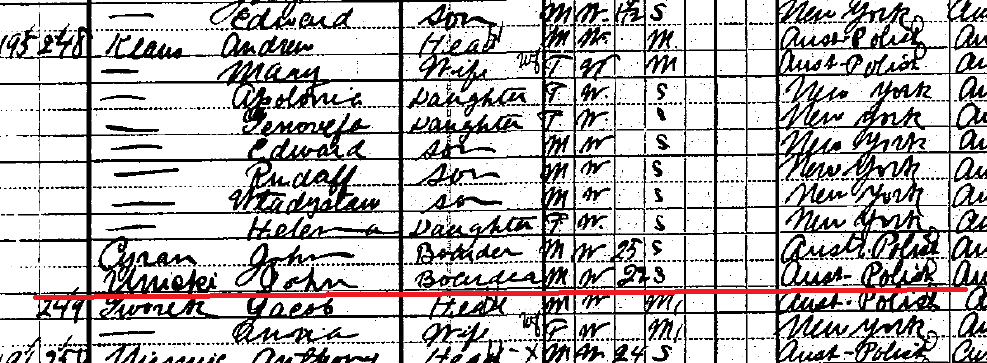 Edward Son M W 1/12 S New York Au
195 248 Klaus Andrew Head M W M Aust-Polish Au
— Mary Wife F W M Aust-Polish Au
— Apolonia Daughter F W S New York Au
— Genovefa Daughter F W S New York Au
— Edward Son M W S New York Au
— Rudalf Son M W S New York Au
— Wladyslaw Son M W S New York Au
— Helena Daughter F W S New York Au
Cyran John Boarder M W 25 S Aust. Polish Au
John Boarder M W 22 S Aust-Polish Au
249 Tworek Jacob Head M W M Aust-Polish Au
— Anna Wife F W M New York Au
Anthony Head M W 24 S Aust-Polish Au